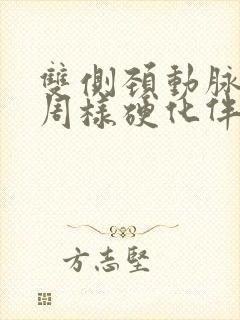 雙側頸動脈
周樣硬化伴
方志堅